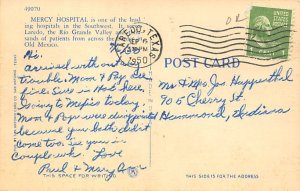 49070
MERCY HOSPITAL is one of the lead-
ing hospitals in the Southwest. It ser
Laredo, the Rio Grande Valley
sands of patients from across the
Old Mexico.
LAREDO, TEXAS
SEP
PM
1950
1
POST CARD
Hi:
Arrived without
trouble. Mom & Pop
Linda Sue in Hosp. here
Going to Mexico today
Mom & Pop were disappointed
because you both didn't
come too. See you in
couple wks. Love
Paul & Mary
THIS SPACE FOR WRITING
Mr & Mrs Jos. Huppenthal
905 Cherry St.
Hammond, Indiana
THIS SIDE IS FOR THE ADDRESS